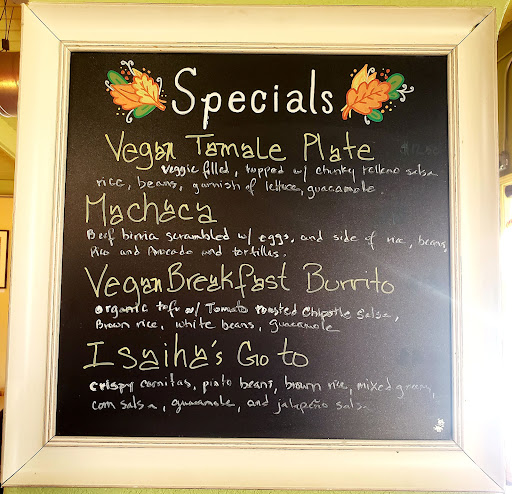 Specials
Vegan Tamale Plate
veggie filled, topped w/ chunky relleno salsa
rice, beans, garnish of lettuce, guacamole.
Machaca
Beef birria scrambled w/ eggs, and side of rice, beans,
Pico and Avocado and tortillas.
Vegan Breakfast Burrito
organic tofu w/ Tomato roasted chipotle salsa,
Brown rice, white beans, guacamole
Isaiha's Go to
crispy carnitas, pinto beans, brown rice, mixed greens,
corn salsa, guacamole, and jalapeño salsa